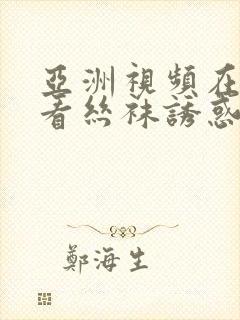 亞洲視頻在
看絲襪誘惑
鄭海生